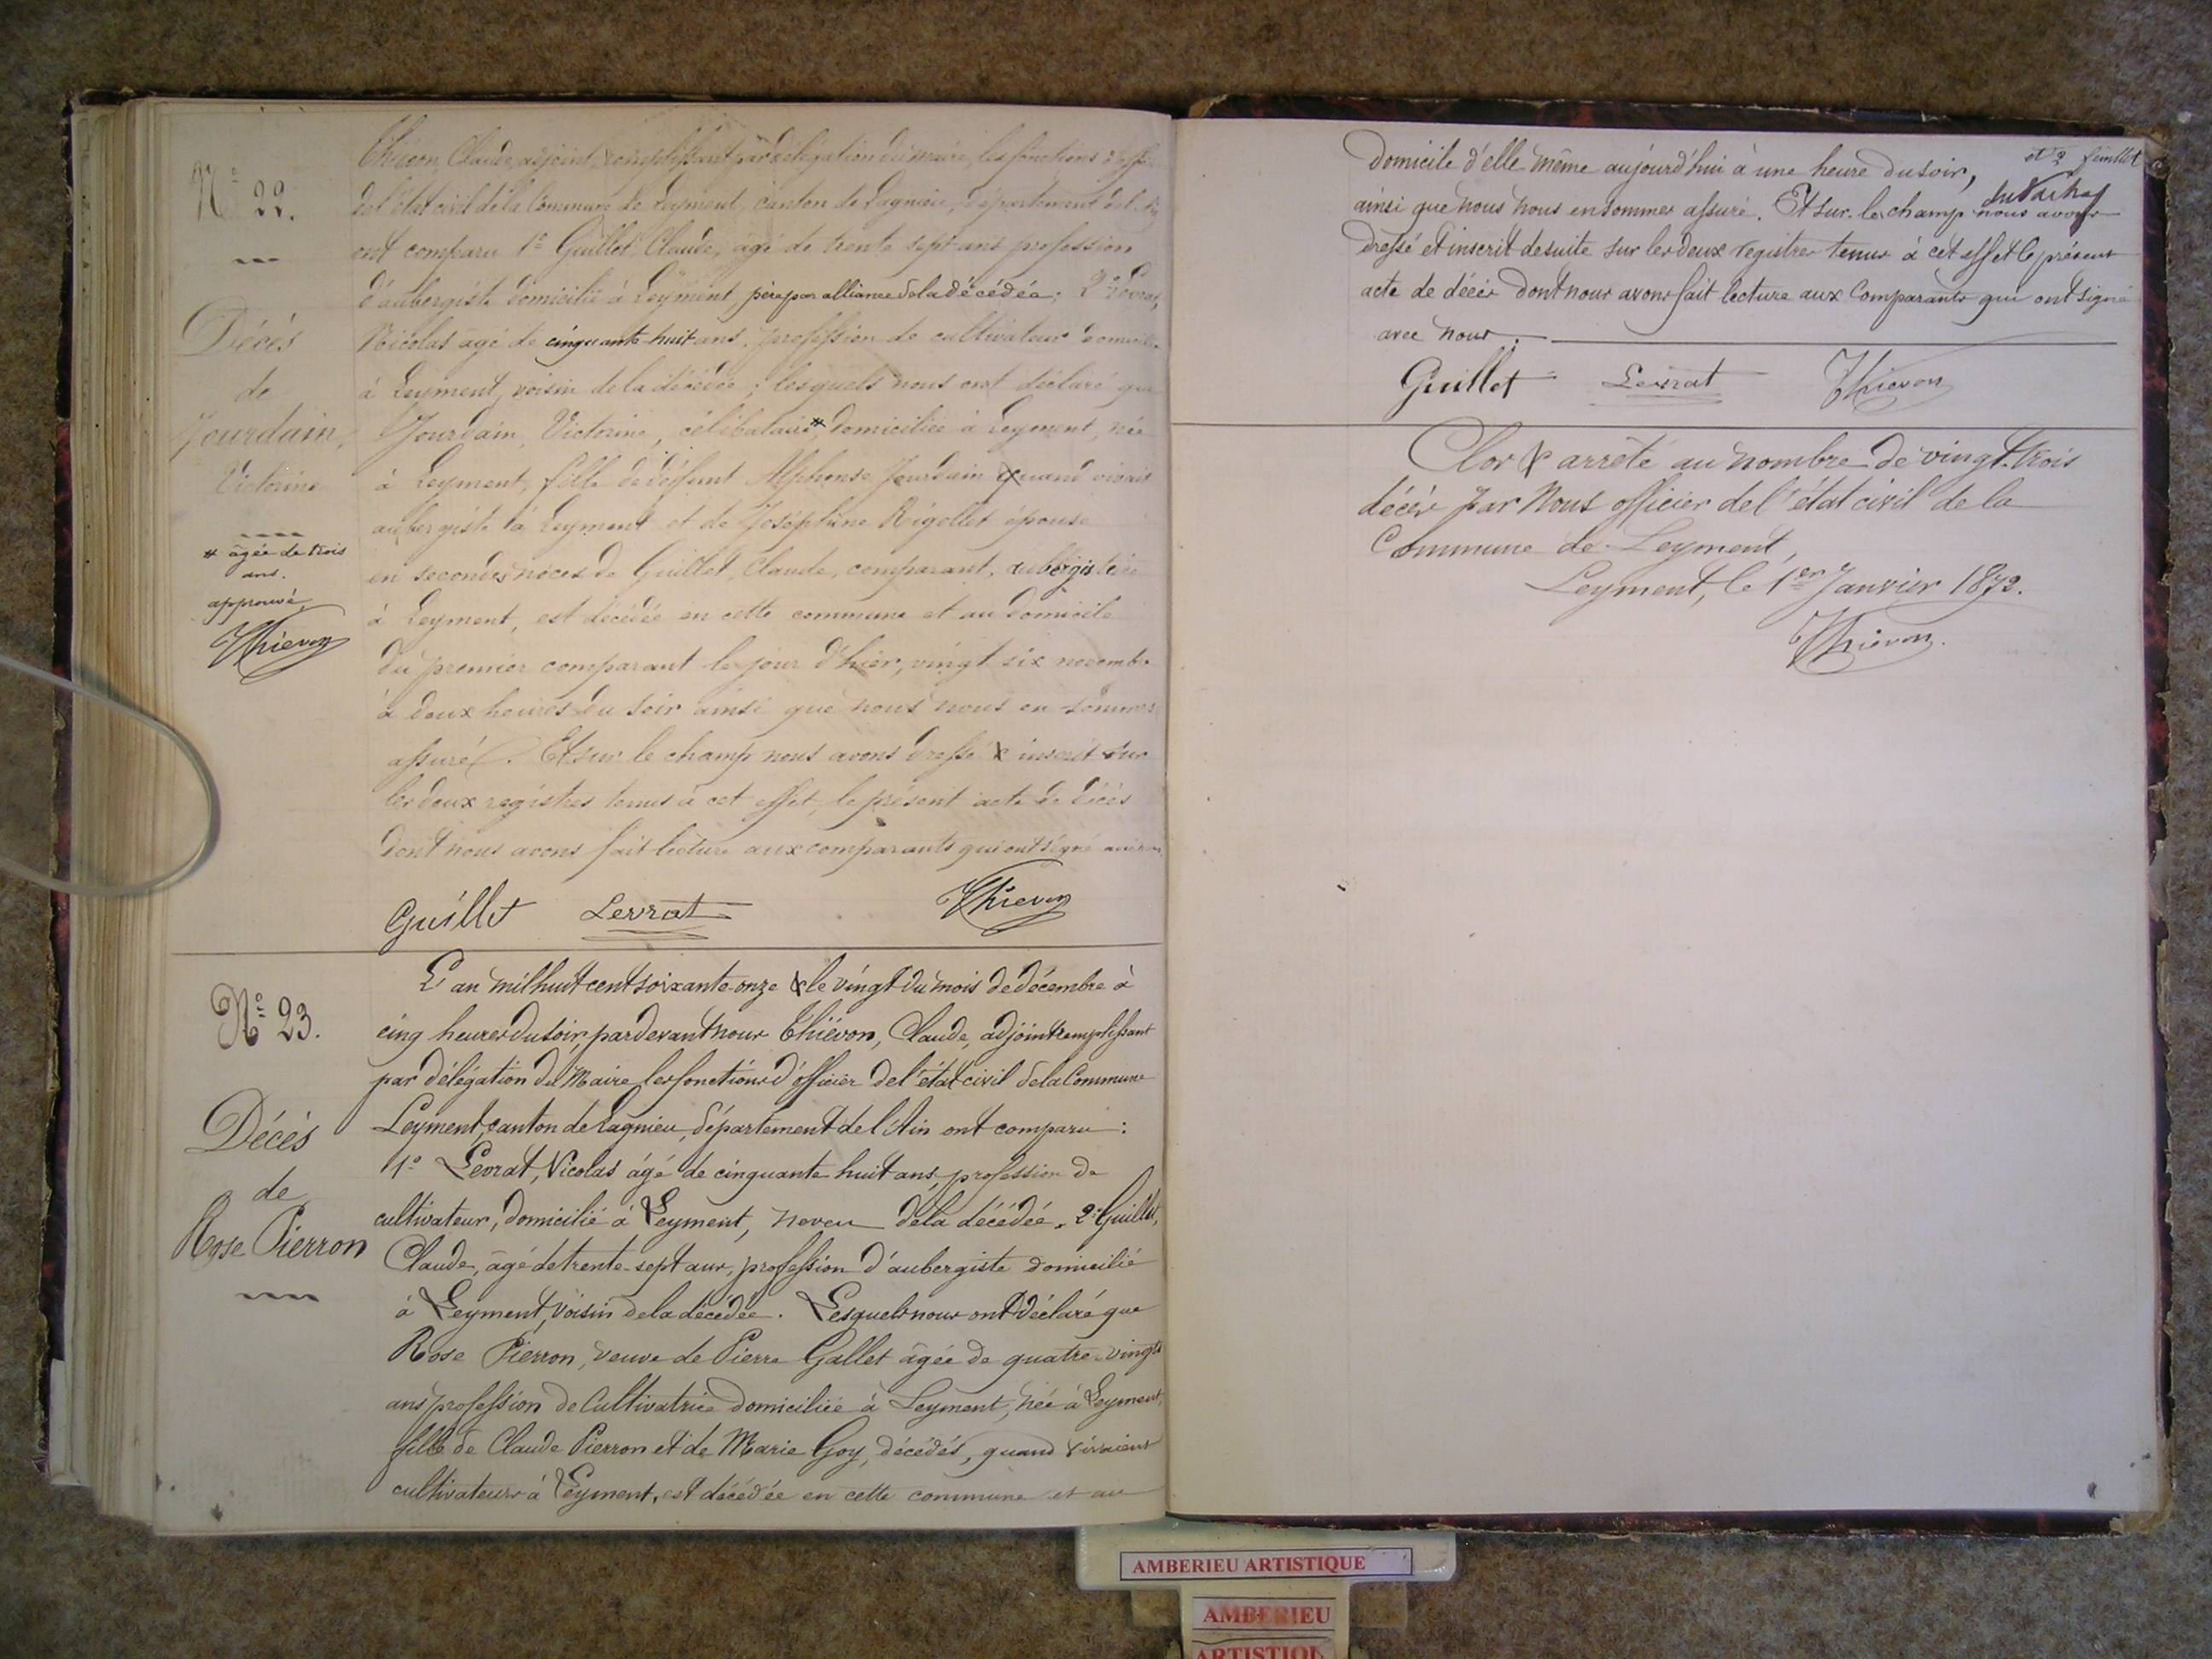 Thiévon, Claude, adjoint, remplissant par délégation du maire, les fonctions d'off
de l'état civil de la Commune de Leyment, canton de Lagnieu, département de l'Ain
ont comparu 1º Guillet Claude, âgé de trente sept ans profession
d'aubergiste domicilié à Leyment père par alliance de la décédée; 2º Levrat,
Nicolas âgé de cinquante-huit ans, profession de cultivateur domicilié
à Leyment, voisin de la décédée; lesquels nous ont déclaré que
Jourdain, Victorine, célibataire * domiciliée à Leyment, née
à Leyment, fille de défunt Alphonse Jourdain quand vivait
aubergiste à Leyment et de Joséphine Rigollet épouse
en secondes noces de Guillet, Claude, comparant, aubergiste
à Leyment, est décédée en cette commune et au domicile
du premier comparant le jour d'hier, vingt six novembre
à deux heures du soir ainsi que nous nous en sommes
assuré. Et sur le champ nous avons dressé & inscrit sur
les deux registres tenus à cet effet, le présent acte de décès
dont nous avons fait lecture aux comparants qui ont signé
Guillet Levrat Thievon
Nº 22.
Décès
de
Jourdain,
Victorine
* âgée de trois
ans.
approuvé
Thievon
Nº 23.
Décès
de
Rose Pierron
L'an mil huit cent soixante-onze & le vingt du mois de décembre à
cinq heures du soir, pardevant nous Thiévon, Claude, adjoint remplissant
par délégation du Maire les fonctions d'officier de l'état civil de la Commune
Leyment, canton de Lagnieu, département de l'Ain ont comparu :
1º Levrat, Nicolas âgé de cinquante huit ans, profession de
cultivateur, domicilié à Leyment, neveu de la décédée. 2º Guillet,
Claude, âgé de trente-sept ans, profession d'aubergiste domicilié
à Leyment, voisin de la décédée. Lesquels nous ont déclaré que
Rose Pierron, veuve de Pierre Gallet âgée de quatre-vingts
ans profession de Cultivatrice domiciliée à Leyment, née à Leyment,
fille de Claude Pierron et de Marie Goy, décédés, quand vivaient
cultivateurs à Leyment, est décédée en cette commune et au
feuillet
domicile d'elle même aujourd'hui à une heure du soir,
ainsi que nous nous en sommes assuré. Et sur le champ nous avons
dressé et inscrit de suite sur les deux registres tenus à cet effet le présent
acte de décès dont nous avons fait lecture aux Comparants qui ont signé
avec nous.
Guillet Levrat Thievon
Clos & arrêté au nombre de vingt-trois
décès par Nous officier de l'état civil de la
Commune de Leyment,
Leyment, le 1er Janvier 1872.
Thievon.
AMBERIEU ARTISTIQUE
AMBERIEU
ARTISTIQU